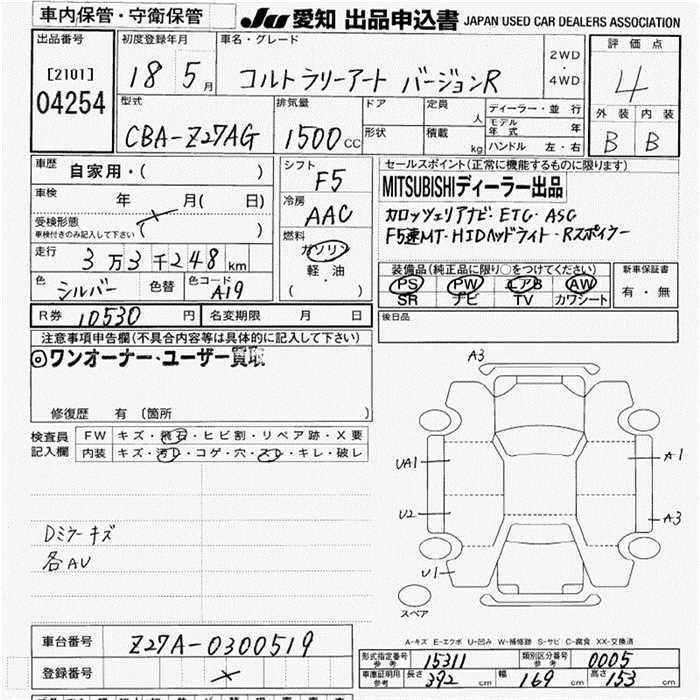 車内保管・守衛保管
JU 愛知 出品申込書 JAPAN USED CAR DEALERS ASSOCIATION
出品番号
[2101]
04254
初度登録年月
18 5 月
車名・グレード
コルトラリーアート バージョンR
2WD
・
4WD
評価点
4
外装 内装
B B
型式
CBA-Z27AG
排気量
1500 CC
ドア
形状
定員 人
積載 kg
ディーラー・並行
モデル年式 年
ハンドル 左・右
車歴 自家用・( )
車検 年 月( 日)
受検形態
車検付きのみ記入して下さい ( )
走行 3万3千248km
色 シルバー 色替 色コード A19
R券 10530 円 名変期限 月 日
シフト F5
冷房 AAC
燃料
ガソリン
軽油
( )
セールスポイント(正常に機能するものに限ります)
MITSUBISHIディーラー出品
カロッツェリアナビ・ETC・ASC
F5速MT・HIDヘッドライト・Rスポイラー
装備品(純正品に限り〇をつけてください)
PS PW エアB AW
SR ナビ TV カワシート
新車保証書
有・無
後日品
注意事項申告欄(不具合内容等は具体的に記入して下さい)
◎ワンオーナー、ユーザー買取
修復歴 有 (箇所 )
検査員記入欄
FW キズ・飛石・ヒビ割・リペア跡・X要
内装 キズ・汚レ・コゲ・穴・スレ・キレ・破レ
Dミラーキズ
各AU
A3
UA1
A1
U2
A3
U1
スペア
A-キズ E-エクボ U-凹み W-補修跡 S-サビ C-腐食 XX-交換済
車台番号 Z27A-0300519
登録番号
形式指定番号 参考 15311
類別区分番号 参考 0005
車庫証明用 参考 長さ 392 cm 幅 169 cm 高さ 153 cm